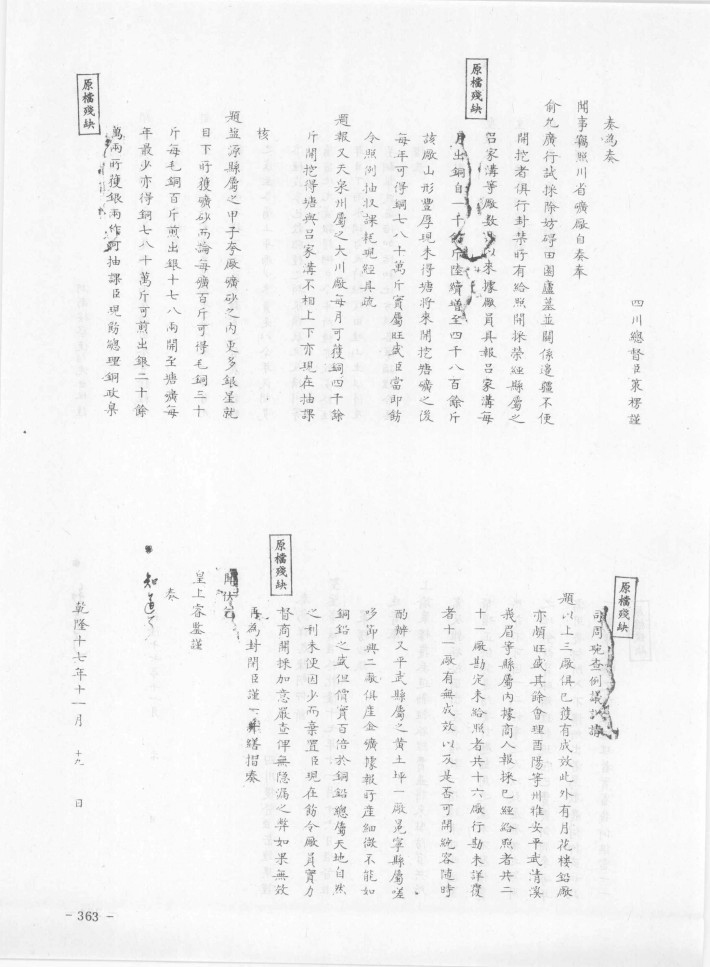 四川總督臣策楞謹
奏為奏
聞事竊照川省礦廠自奏奉
俞允廣行試採除妨碍田園廬墓並關係邊疆不便
開挖者俱行封禁所有給照開採榮經縣屬之
呂家溝等廠以來據廠員具報呂家溝每
原檔殘缺
月出銅自一千餘斤陸續增至四千八百餘斤
該廠山形豐厚現未得塘將來開挖塘礦之後
每年可得銅七八十萬斤實屬旺盛臣當即飭
令照例抽收課耗現經具疏
題報又天泉州屬之大川廠每月可獲銅四千餘
斤開挖得塘與呂家溝不相上下亦現在抽課
核
題盐源縣屬之甲子夸廠礦砂之內更多銀星就
目下所獲礦砂而論每礦百斤可得毛銅三十
斤每毛銅百斤煎出銀十七八兩開至塘礦每
年最少亦得銅七八十萬斤可煎出銀二十餘
萬兩所獲銀兩作何抽課臣現飭總理銅政臬
原檔殘缺
原檔殘缺
司周琬查例議
題以上三廠俱已獲有成效此外有月花樓鉛廠
亦頗旺盛其餘會理酉陽寧州雅安平武清溪
峩眉等縣屬內據商人報採已經給照者共二
十一廠勘定未給照者共十六廠行勘未詳覆
者十一廠有無成效以及是否可開統容隨時
酌辦又平武縣屬之黄土坪一廠冕寧縣屬嗟
哆節興二廠俱産金礦據報所産細微不能如
銅鉛之盛但價實百倍於銅鉛總屬天地自然
之利未便因少而棄置臣現在飭令廠員實力
督商開採加意嚴查俾無隐漏之弊如果無效
原檔殘缺
再為封閉臣謹一併繕摺奏
聞伏乞
皇上睿鑒謹
奏
知道了
乾隆十七年十一月 十九 日
- 363 -